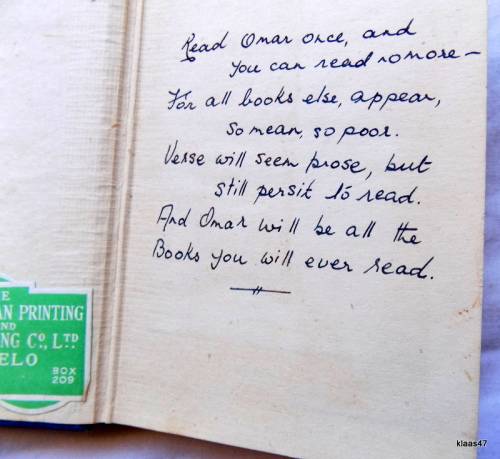 Read Omar once, and
you can read no more –
For all books else, appear,
so mean, so poor.
Verse will seem prose, but
still persit to read.
And Omar will be all the
Books you will ever read.
E
AN PRINTING
ND
NG CO., LTD
ELO
BOX
209
klaas47